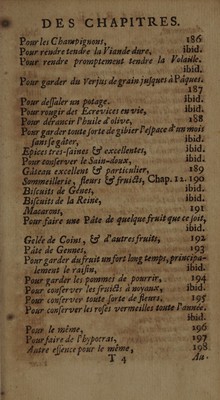 DES CHAPITRES.
Pour les Champignons, 186
Pour rendre tendre la Viande dure, ibid.
Pour rendre promptement tendre la Volaille.
ibid.
Pour garder du Verjus de grain jusques à Pâques.
187
Pour dessaler un potage. ibid.
Pour rougir des Ecrevices en vie, ibid.
Pour dérancir l'huile d'olive, 188
Pour garder toute sorte de gibier l'espace d'un mois
sans se gâter, ibid.
Epices tres-saines & excellentes, ibid.
Pour conserver le Sain-doux, ibid.
Gâteau excellent & particulier, 189
Sommeillerie, fleurs & fruicts, Chap. 12. 190
Biscuits de Génes, ibid.
Biscuits de la Reine, ibid.
Macarons, 191
Pour faire une Pâte de quelque fruit que ce soit,
ibid.
Gelée de Coins, & d'autres fruits, 192
Pâte de Gennes, 193
Pour garder du fruit un fort long temps, principa-
lement le raisin, ibid.
Pour garder les pommes de pourrir, 194
Pour conserver les fruicts à noyaux, ibid.
Pour conserver toute sorte de fleurs, 195
Pour conserver les roses vermeilles toute l'année.
ibid.
Pour le même, 196
Pour faire de l'hypocrat, 197
Autre essence pour le même, 198
T 4 Au-